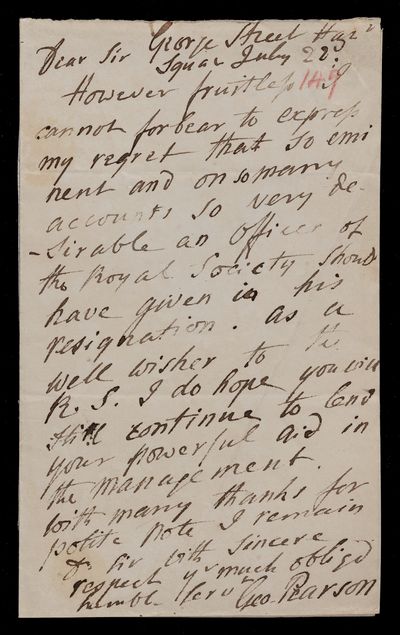 George Street Han r
Dear Sir Squar July 22d
However fruitless I
149
cannot forbear to express
my regret that so emi
nent and on so many
accounts so very de-
-sirable an officer of
the Royal Society should
have given in his
resignation. as a
well wisher to the
R. S. I do hope you will
still continue to lend
your powerful aid in
the management.
with many thanks for
polite note I remain
Dr Sir with sincere
respect yr much obliged
humble Servt
Geo Pearson